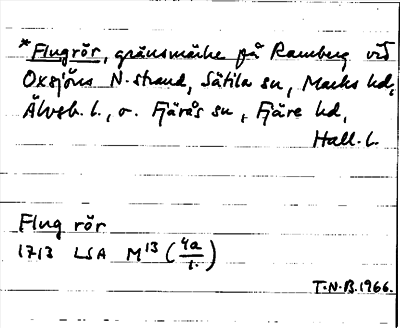 *Flugrör, gränsmärke på Ramberg vid
Oxsjöns N. strand, Sätila sn, Marks hd,
Älvsb. l., o. Fjärås sn, Fjäre hd,
Hall. l.
Flug rör
1713 LSA M13 (4a/1.)
T.N.B. 1966.